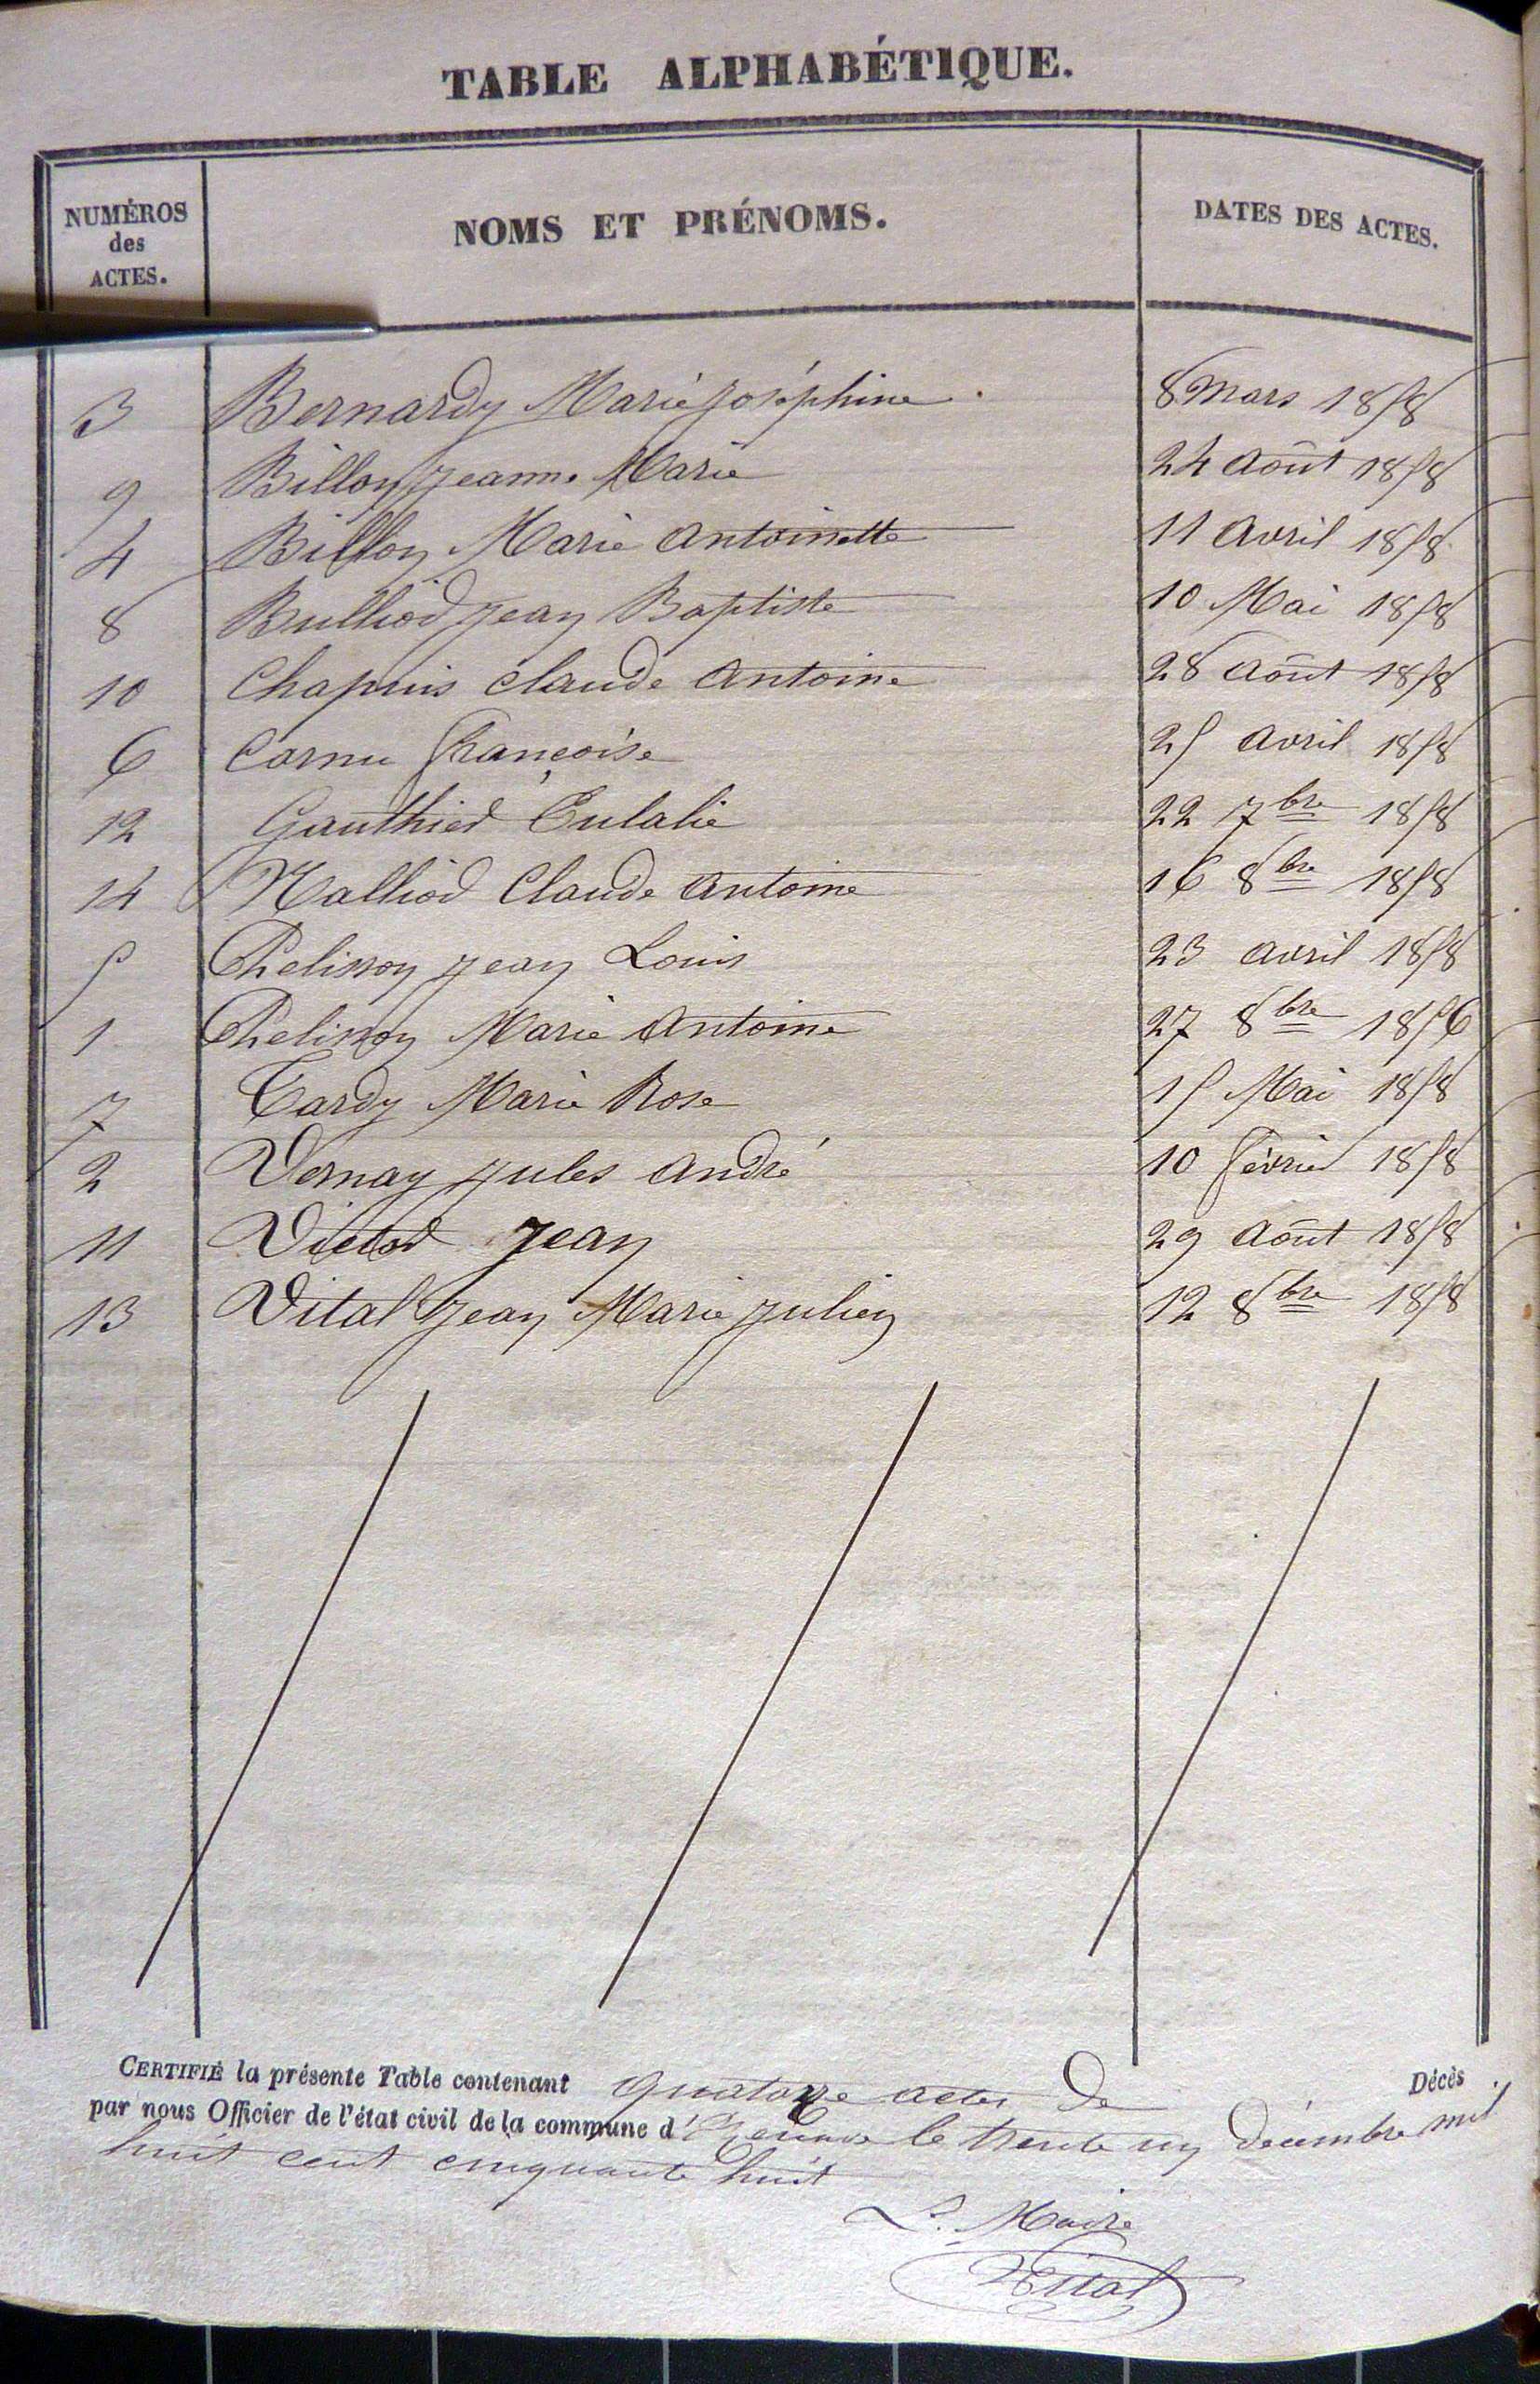 TABLE ALPHABÉTIQUE.
NUMÉROS des ACTES. NOMS ET PRÉNOMS. DATES DES ACTES.
3 Bernardy Marie joséphine 8 Mars 1858
9 Billon jeanne Marie 24 Août 1858
4 Billon Marie Antoinette 11 Avril 1858
8 Bulliod jean Baptiste 10 Mai 1858
10 Chapuis Claude Antoine 28 Août 1858
6 Cornu françoise 25 Avril 1858
12 Gauthier Eulalie 22 7bre 1858
14 Malliod Claude Antoine 16 8bre 1858
5 Pelisson jean Louis 23 Avril 1858
1 Pelisson Marie Antoine 27 8bre 1856
7 Tardy Marie Rose 15 Mai 1858
2 Vernay jules André 10 février 1858
11 Victor jean 29 Août 1858
13 Vital jean Marie julien 12 8bre 1858
CERTIFIÉ la présente Table contenant quatorze actes de Décès
par nous Officier de l'état civil de la commune d' le trente un décembre mil
huit cent cinquante huit
Le Maire
Vital